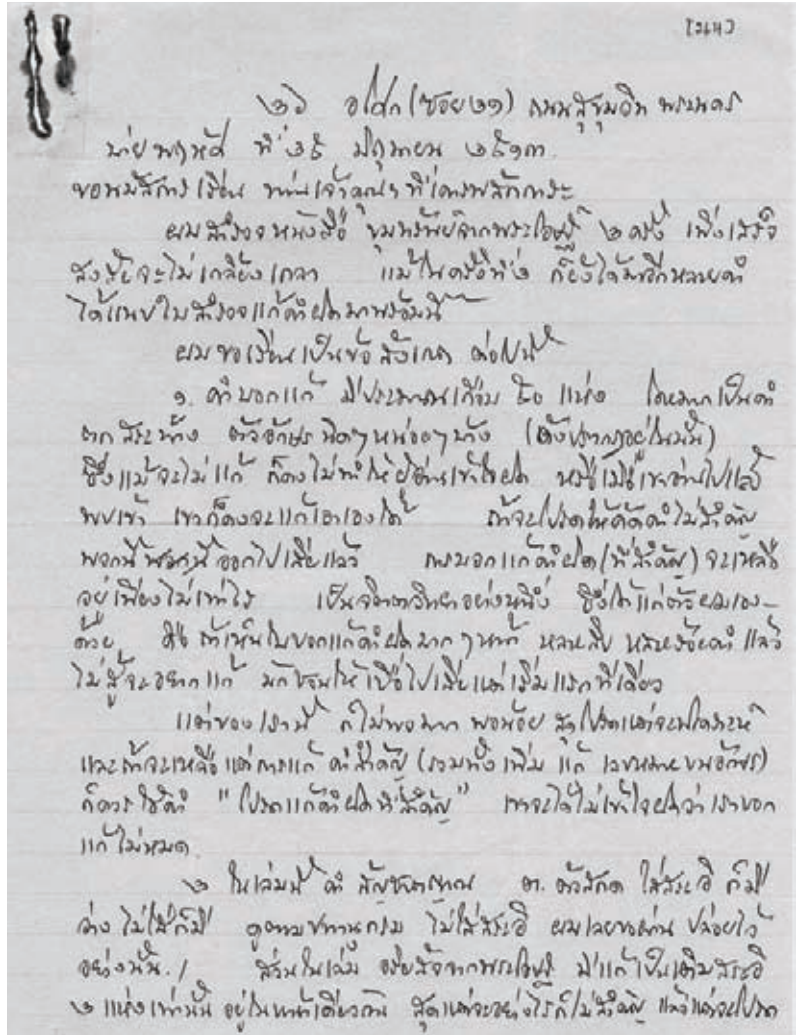 ๒๖ อโศก (ซอย ๒๑) ถนนสุขุมวิท พระนคร
บ่ายพฤหัส ที่ ๒๕ มิถุนายน ๒๕๑๓
ขอนมัสการ เรียน ท่านเจ้าคุณฯ ที่เคารพสักการะ
ผมสำรวจหนังสือ ขุมทรัพย์จากพระโอษฐ์ ๒ ครั้ง เพิ่งเสร็จ
สงสัยจะไม่เกลี้ยงเกลา แม้ในครั้งที่ ๒ ก็ยังได้พบอีกหลายคำ
ได้แนบใบสำรวจแก้คำผิดมาพร้อมนี้
ผมขอเรียนเป็นข้อสังเกต ต่อไปนี้
๑. คำบอกแก้ มีประมาณเกือบ แห่ง โดยมากเป็นคำ
ตกสระบ้าง ตัวอักษรนิดๆหน่อยๆบ้าง (ดังปรากฏอยู่ในนั้น)
ซึ่งแม้จะไม่แก้ ก็คงไม่ทำให้ผู้อ่านเข้าใจผิด หรือเมื่อเขาอ่านไปแล้ว
พบเข้า เขาก็คงจะแก้เอาเองได้ ถ้าจะโปรดให้คัดคำไม่สำคัญ
พวกนี้ ออกไปเสียแล้ว การบอกแก้คำผิด (ที่สำคัญ) จะเหลือ
อยู่เพียงไม่เท่าไร เป็นจิตตวิทยาอย่างหนึ่ง ซึ่งได้แก่ตัวผมเอง
ด้วย คือ ถ้าเห็นใบบอกแก้คำผิดมากๆหน้า หลายสิบ หลายร้อยคำ แล้ว
ไม่สู้จะอยากแก้ มักชวนให้เบื่อไปเสียแต่เริ่มแรกทีเดียว
แต่ของเรานี้ ก็ไม่พอมาก พอน้อย สุดโปรดแต่จะพิเคราะห์
และถ้าจะเหลือแต่การแก้ คำสำคัญ (รวมทั้งเพิ่ม แก้ เลขหมาย )
ก็ควรใช้คำ "โปรดแก้คำผิดที่สำคัญ" เขาจะได้ไม่เข้าใจผิดว่าเราบอก
แก้ไม่หมด
๒ ในเล่มนี้ คำ ต. ตัวสกด ใส่สระอิ ก็มี
บ้าง ไม่ใส่ก็มี ดูตามปทานุกรม ไม่ใส่สระอิ ผมเลยขอผ่าน ปล่อยไว้
อย่างนั้น / ส่วนในเล่ม อริยสัจจากพระโอษฐ์ มีแก้เป็นเติมสระอิ
๒ แห่งเท่านั้น อยู่ในหน้าเดียวกัน สุดแต่จะอย่างไรก็ไม่สำคัญ แล้วแต่จะโปรด